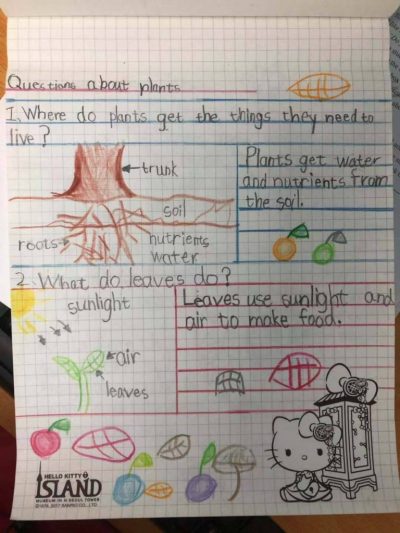 Questions about plants
1. Where do plants get the things they need to
live?
trunk
soil
roots
nutrients
water
Plants get water
and nutrients from
the soil.
2. What do leaves do?
sunlight
air
leaves
Leaves use sunlight and
air to make food.
HELLO KITTY
ISLAND
MUSEUM IN N SEOUL TOWER